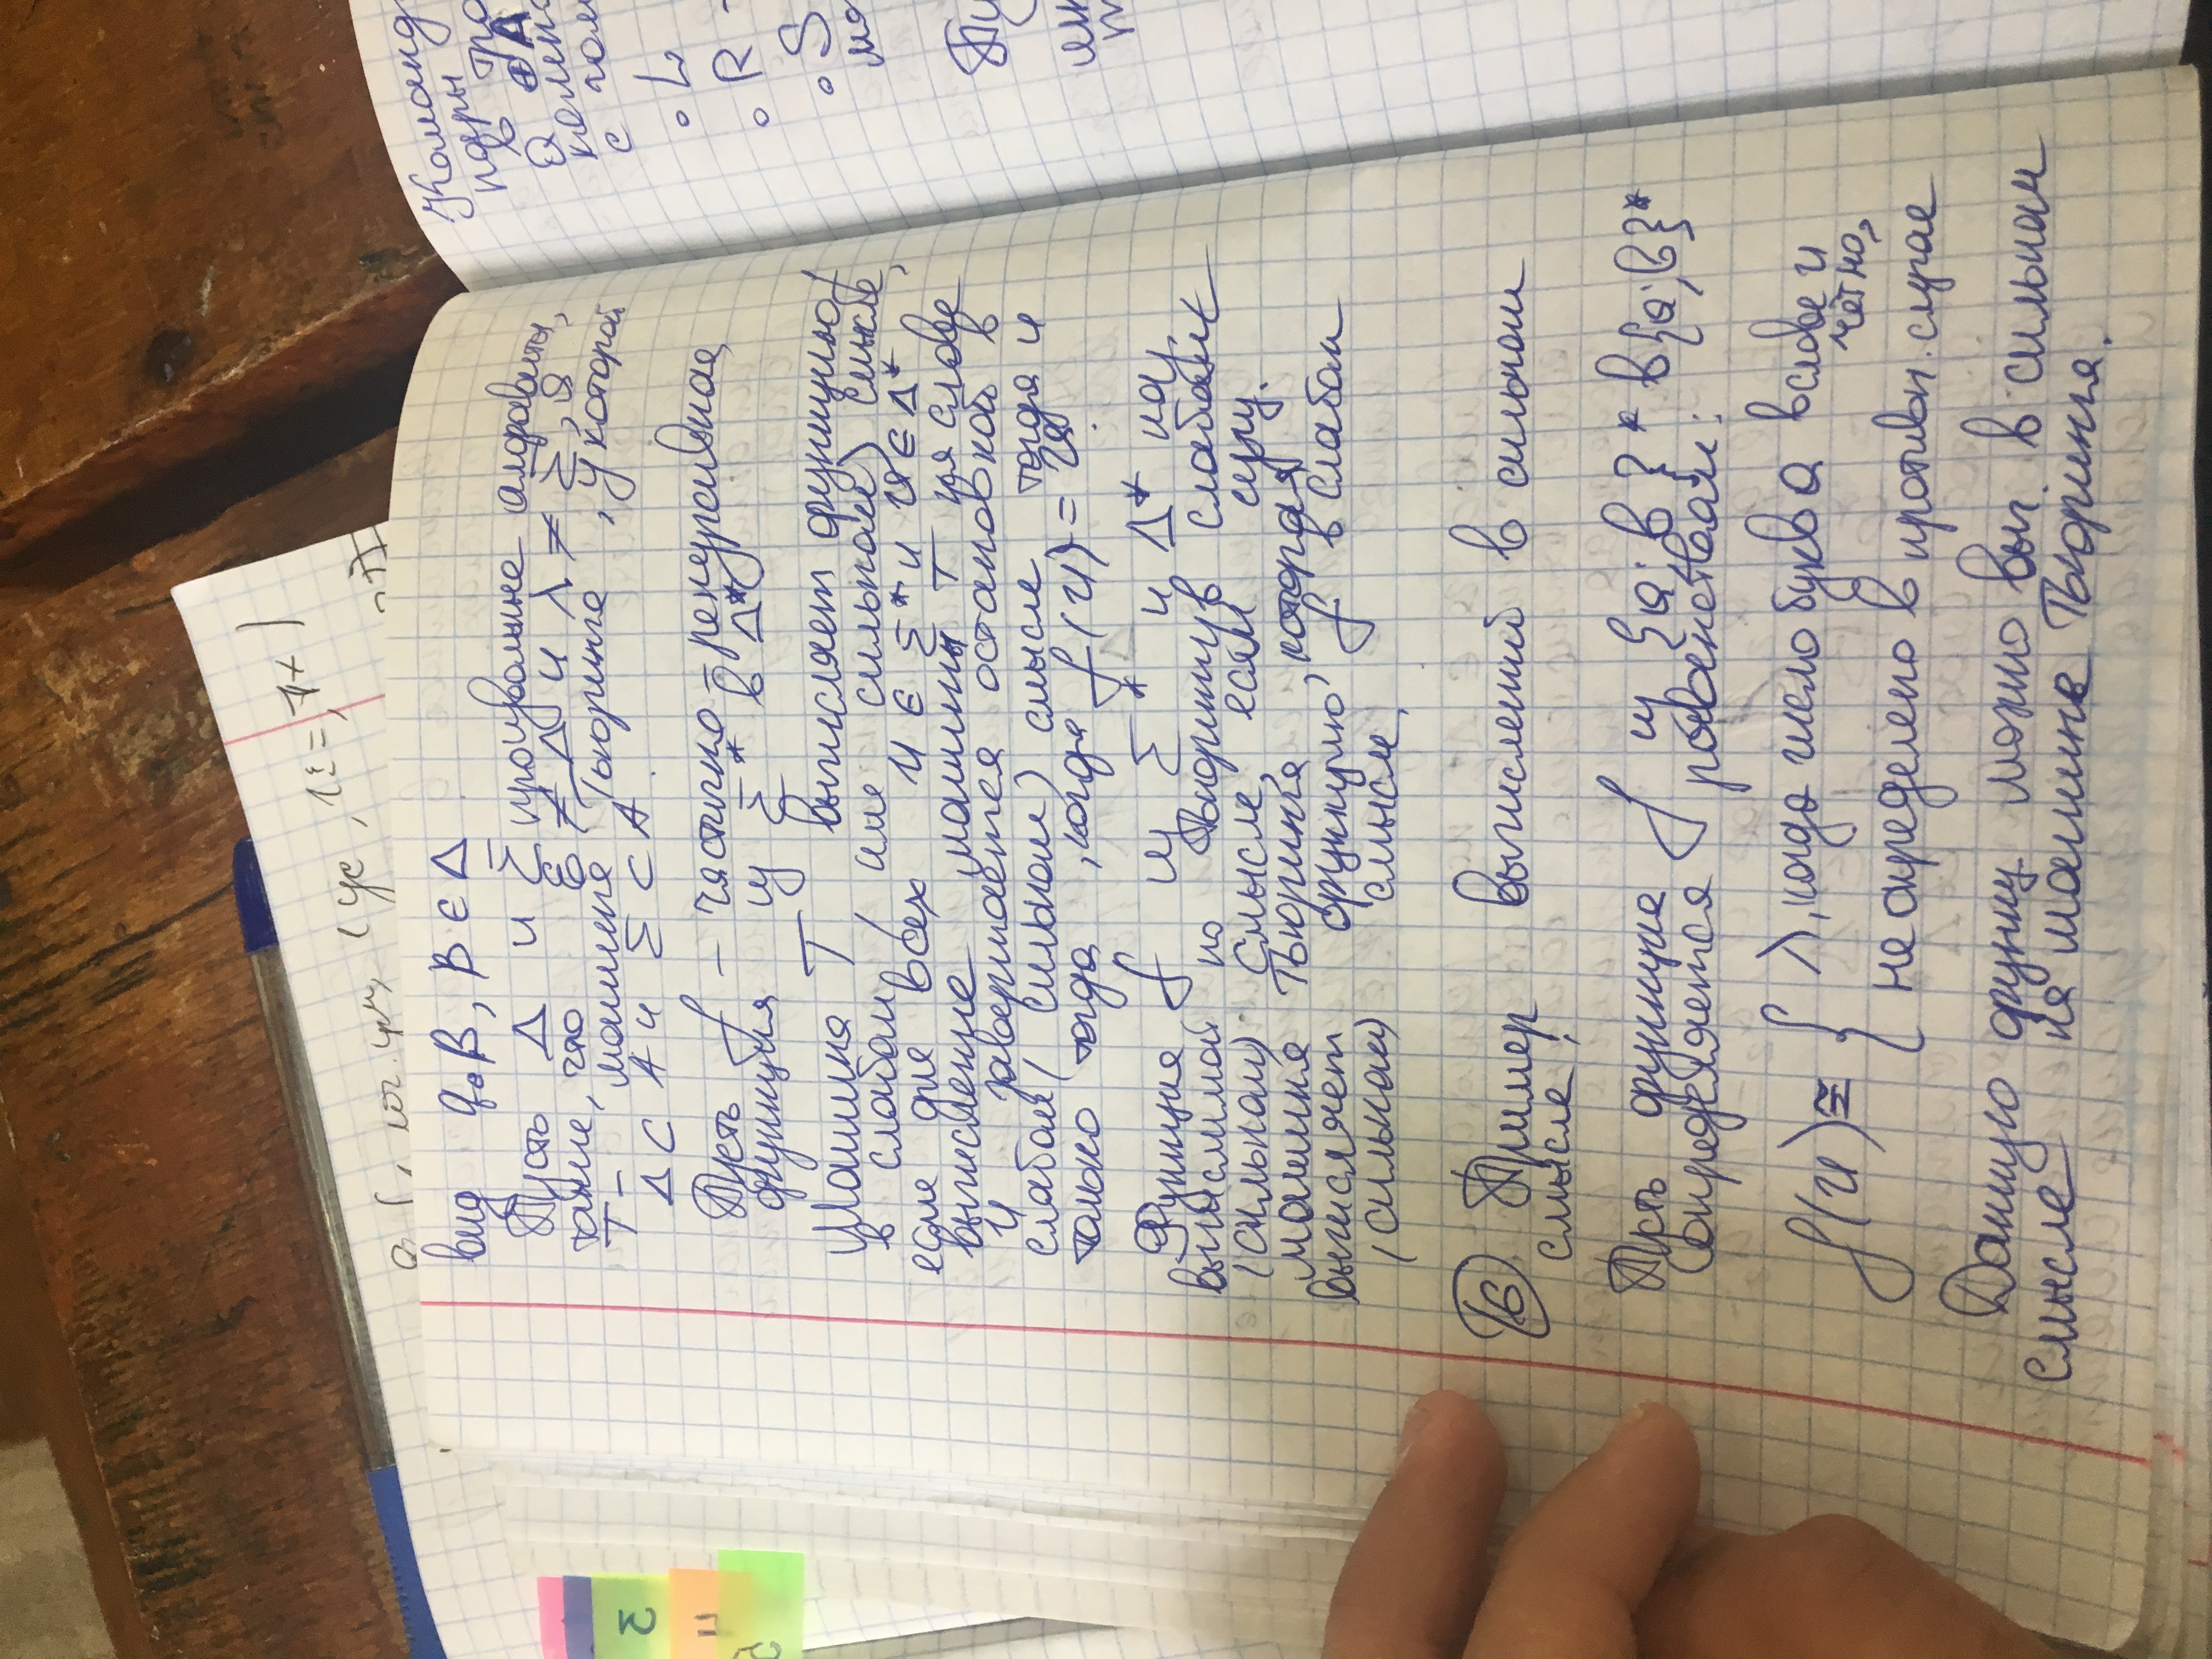 вид q₀B, B ∈ Δ
Пусть Δ и Σ произвольные алфавиты,
такие, что Ɛ ≠ Δ и λ ≠ Σ, а
T – машина Тьюринга, у которой
Δ ⊂ A и Σ ⊂ A.
Пусть f – частично-рекурсивная
функция из Σ* в Δ*
Машина T вычисляет функцию f
в слабом (или сильном) смысле,
если для всех u ∈ Σ* и v ∈ Δ*
вычисление машины T на слове
u завершается остановкой в
слабом (сильном) смысле тогда и
только тогда, когда f(u) = v.
Функция f из Σ* и Δ* наз.
вычислимой по Тьюрингу в слабом
(сильном) смысле, если сущ.
машина Тьюринга, которая
вычисляет функцию f в слабом
(сильном) смысле.
16 Пример вычислений в сильном
смысле:
Пусть функция f из {a; b}* в {a; b}*
определяется равенством:
f(u) ≅ { λ, когда число букв a в слове u
чётно,
не определено в противн. случае
Данную функц. можно выч. в сильном
смысле на машине Тьюринга.
Команд
пары
в
Q
с
• L
• R –
• S
3
4
5